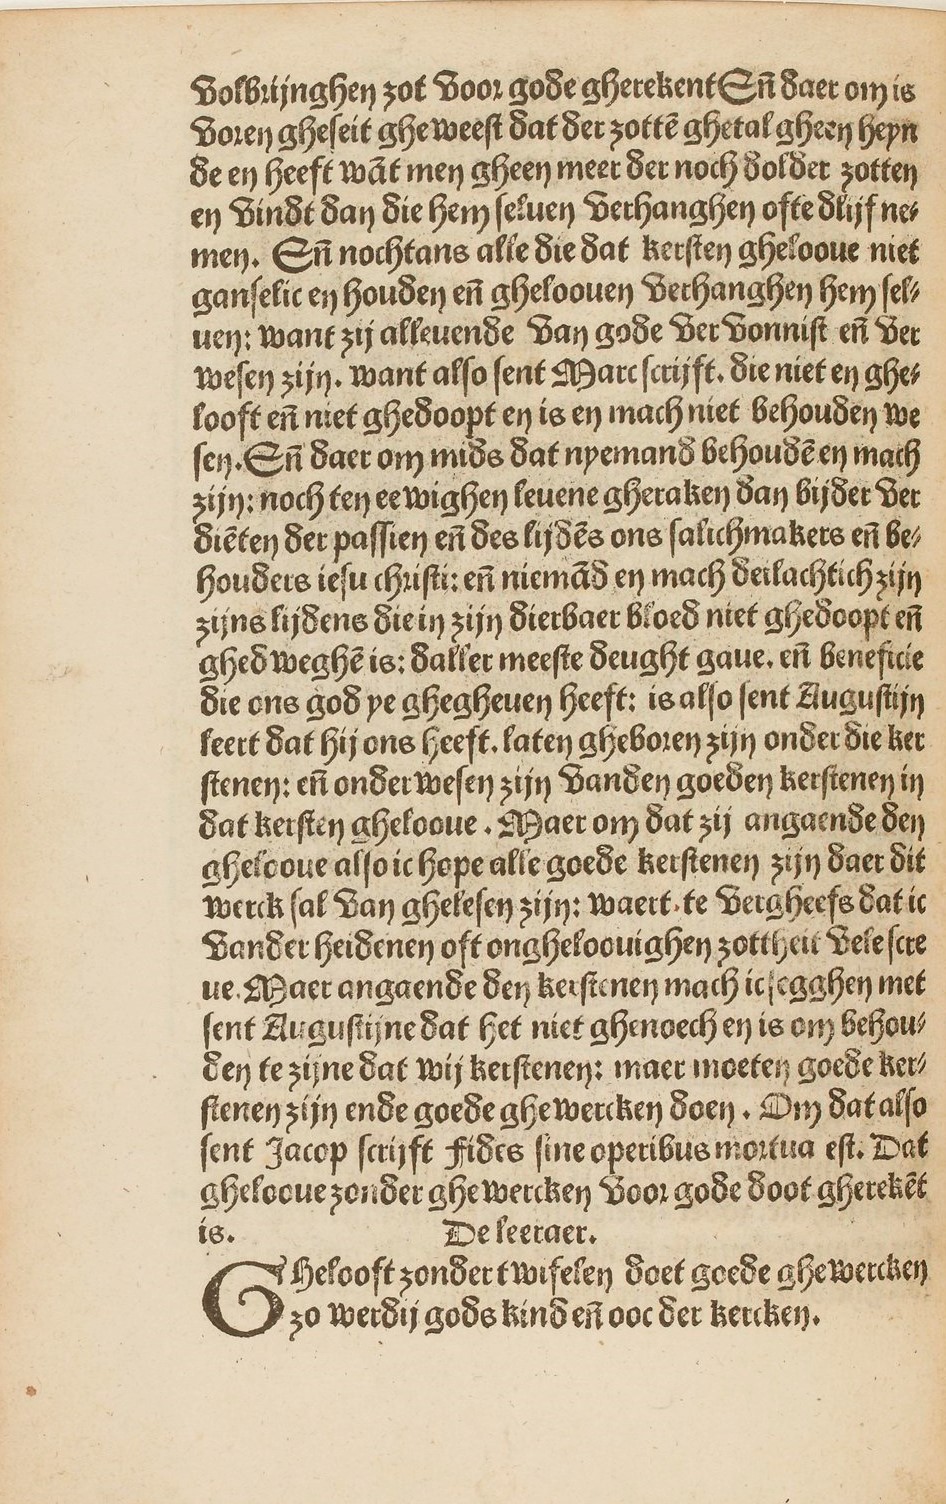 volbrijnghen zot voor gode gherekent Eñ daer om is
voren gheseit gheweest dat der zottē ghetal gheen heyn
de en heeft wāt men gheen meer der noch dolder zotten
en vindt dan die hem seluen verhanghen ofte dlijf ne⸗
men. Eñ nochtans alle die dat kersten ghelooue niet
ganselic en houden eñ ghelooven verhanghen hem sel⸗
uen: want zij alleuende van gode ver vonnist eñ ver
wesen zijn. want also sent Marc scrijft. die niet en ghe⸗
looft eñ niet ghedoopt en is en mach niet behouden we
sen. Eñ daer om mids dat nyemand behoudē en mach
zijn: noch ten eewighen leuene gheraken dan bijder ver
diēten der passien eñ des lijdēs ons salichmakers eñ be⸗
houders iesu christi: eñ niemād en mach deilachtich zijn
zijns lijdens die in zijn dierbaer bloed niet ghedoopt eñ
ghedweghē is: daller meeste deught gaue. eñ beneficie
die ons god ye ghegheuen heeft: is also sent Augustijn
leert dat hij ons heeft. laten gheboren zijn onder die ker
stenen: eñ onderwesen zijn vanden goeden kerstenen in
dat kersten ghelooue. Maer om dat zij angaende den
ghelooue also ic hope alle goede kerstenen zijn daer dit
werck sal van ghelesen zijn: waert te vergheefs dat ic
vander heidenen oft ongheloouighen zottheit vele scre
ue. Maer angaende den kerstenen mach ic segghen met
sent Augustijne dat het niet ghenoech en is om behou⸗
den te zijne dat wij kerstenen: maer moeten goede ker⸗
stenen zijn ende goede ghewercken doen. Om dat also
sent Jacop scrijft Fides sine operibus mortua est. Dat
ghelooue zonder ghewercken voor gode doot gherekēt
is. De leeraer.
Ghelooft zonder twifelen doet goede ghewercken
zo werdij gods kind eñ ooc der kercken.